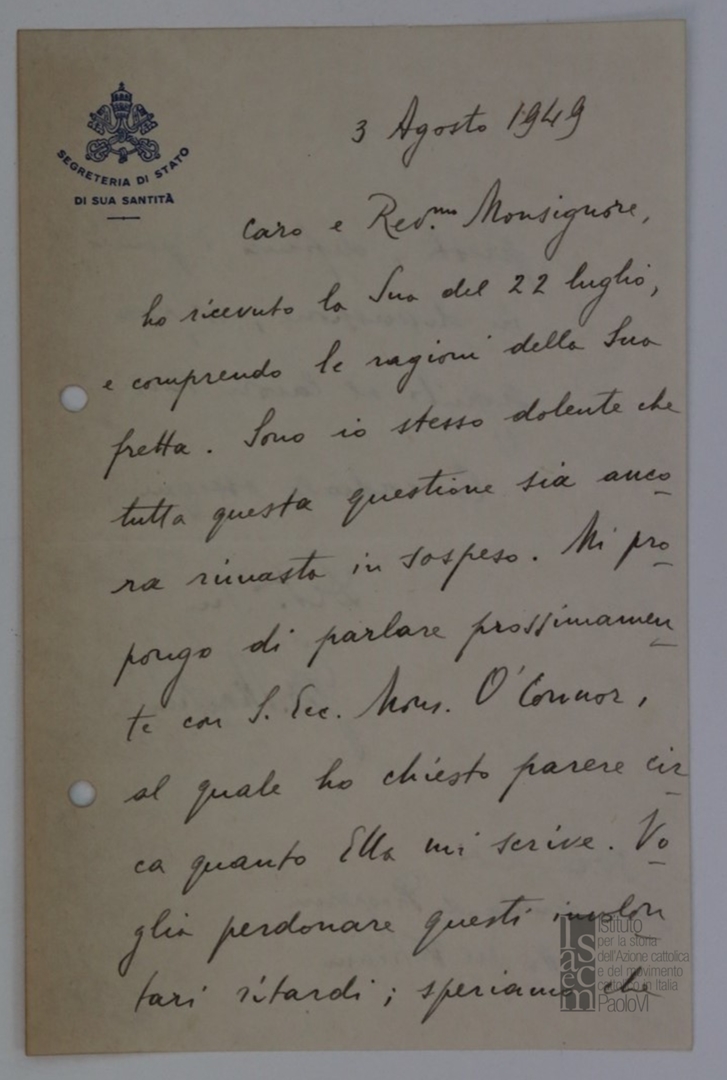 SEGRETERIA DI STATO
DI SUA SANTITÀ
3 Agosto 1949
Caro e Rev.mo Monsignore,
ho ricevuto la Sua del 22 luglio,
e comprendo le ragioni della Sua
fretta. Sono io stesso dolente che
tutta questa questione sia anco-
ra rimasta in sospeso. Mi pro-
pongo di parlare prossimamen-
te con S. Ecc. Mons. O'Connor,
al quale ho chiesto parere cir-
ca quanto Ella mi scrive. Vo-
glia perdonare questi involon-
tari ritardi; speriamo che
Isacem
Istituto
per la storia
dell'Azione cattolica
e del movimento
cattolico in Italia
PaoloVI